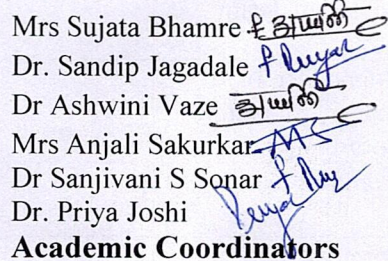 Mrs Sujata Bhamre
Dr. Sandip Jagadale
Dr Ashwini Vaze
Mrs Anjali Sakurkar
Dr Sanjivani S Sonar
Dr. Priya Joshi
Academic Coordinators